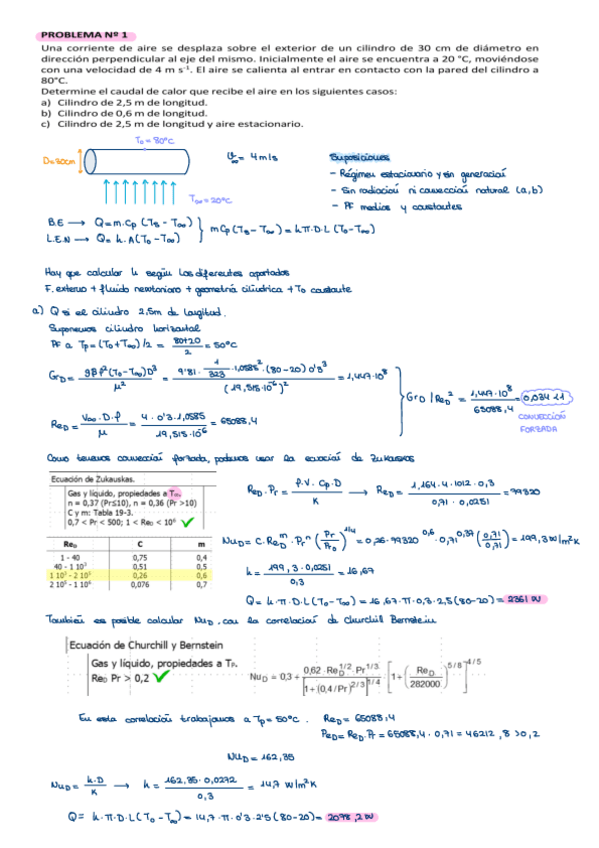 PROBLEMA Nº 1
Una corriente de aire se desplaza sobre el exterior de un cilindro de 30 cm de diámetro en
dirección perpendicular al eje del mismo. Inicialmente el aire se encuentra a 20 °C, moviéndose
con una velocidad de 4 m s⁻¹. El aire se calienta al entrar en contacto con la pared del cilindro a
80°C.
Determine el caudal de calor que recibe el aire en los siguientes casos:
a) Cilindro de 2,5 m de longitud.
b) Cilindro de 0,6 m de longitud.
c) Cilindro de 2,5 m de longitud y aire estacionario.
T₀ = 80°C
D=30cm
V∞ = 4 m/s
T∞ = 20°C
Suposiciones
- Régimen estacionario y sin generación
- Sin radiación ni convección natural (a,b)
- PF medios y constantes
B.E → Q = m·Cp (Ts - T∞)
L.E.N → Q = h·A (T₀ - T∞)
m Cp (Ts - T∞) = h·π·D·L (T₀ - T∞)
Hay que calcular h según los diferentes apartados
F. externo + fluido newtoniano + geometría cilíndrica + T₀ constante
a) Q si el cilindro 2,5m de longitud.
Suponemos cilindro horizontal
PF a Tp = (T₀ + T∞)/2 = 80+20/2 = 50°C
Gr_D = gβρ²(T₀-T∞)D³/μ² = 9'81 · 1/323 · 1,0585² · (80-20) 0'3³/(19,515·10⁻⁶)² = 1,447·10⁸
Re_D = V∞·D·ρ/μ = 4·0'3·1,0585/19,515·10⁻⁶ = 65088,4
Gr_D/Re_D² = 1,447·10⁸/65088,4 = 0,034 << 1
CONVECCIÓN FORZADA
Como tenemos convección forzada, podemos usar la ecuación de Zukauskas
Ecuación de Zukauskas.
Gas y líquido, propiedades a T∞.
n = 0,37 (Pr≤10), n = 0,36 (Pr >10)
C y m: Tabla 19-3.
0,7 < Pr < 500; 1 < Re_D < 10⁶
Re_D C m
1 - 40 0,75 0,4
40 - 1 10³ 0,51 0,5
1 10³ - 2 10⁵ 0,26 0,6
2 10⁵ - 1 10⁶ 0,076 0,7
Re_D·Pr = ρ·V·Cp·D/K → Re_D = 1,164·4·1012·0,3/0,71·0,0251 = 79320
Nu_D = C·Re_D^m·Pr^n (Pr/Pr₀)^1/4 = 0,26·79320^0,6·0,71^0,37 (0,71/0,71) = 199,3 W/m²K
h = 199,3·0,0251/0,3 = 16,67
Q = h·π·D·L (T₀-T∞) = 16,67·π·0,3·2,5 (80-20) = 2361 W
También es posible calcular Nu_D, con la correlación de Churchil Bernstein
Ecuación de Churchill y Bernstein
Gas y líquido, propiedades a Tₚ.
Re_D Pr > 0,2
Nu_D = 0,3 + 0,62·Re_D^1/2·Pr^1/3/[1+(0,4/Pr)^2/3]^1/4 · [1+(Re_D/282000)^5/8]^4/5
En esta correlación trabajamos a Tp = 50°C. Re_D = 65088,4
Pe_D = Re_D·Pr = 65088,4·0,71 = 46212,8 > 0,2
Nu_D = 162,35
Nu_D = h·D/K → h = 162,35·0,0272/0,3 = 14,7 W/m²K
Q = h·π·D·L (T₀ - T∞) = 14,7·π·0'3·2'5 (80-20) = 2078,2 W